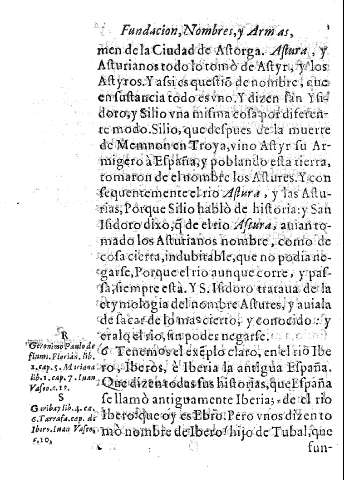 Fundacion, Nombres, y Armas,
men de la Ciudad de Astorga. Astura, y
Asturianos todo lo tomò de Astyr, y los
Astyros. Y assi es questiõ de nombre, que
en sustancia todo es vno. Y dizen san Ysi-
doro, y Silio vna misma cosa por diferen-
te modo. Silio, que despues de la muerte
de Memnon en Troya, vino Astyr su Ar-
migero à España, y poblando esta tierra,
tomaron de el nombre los Astures. Y con
sequentemente el rio Astura, y las Astu-
rias, Porque Silio hablò de historia: y San
Isidoro dixo, q̃ de el rio Astura, auian to-
mado los Asturianos nombre, como de
cosa cierta, indubitable, que no podia ne-
garse, Porque el rio aunque corre, y pas-
sa, siempre está. Y S. Isidoro trataua de la
etymologia del nombre Astures, y auiala
de sacar de lo mas cierto, y conocido: y
eralo el rio, sin poder negarse.
6 Tenemos el exẽplo claro, en el rio Ibe
ro, Iberos, è Iberia la antigua España.
Que dizen todas sus historias, que España
se llamò antiguamente Iberia; de el rio
Ibero que oy es Ebro. Pero vnos dizen to
mò nombre de Ibero hijo de Tubal, que
fun-
R
Geronimo Paulo de
flum. Florian. lib.
2. cap. 5. Mariana
lib. 1. cap. 7. Iuan
Vaseo. c. 12.
S
Garibay lib. 4. ca.
6. Tarrafa. cap. de
Ibero. Iuan Vaseo,
c. 10.